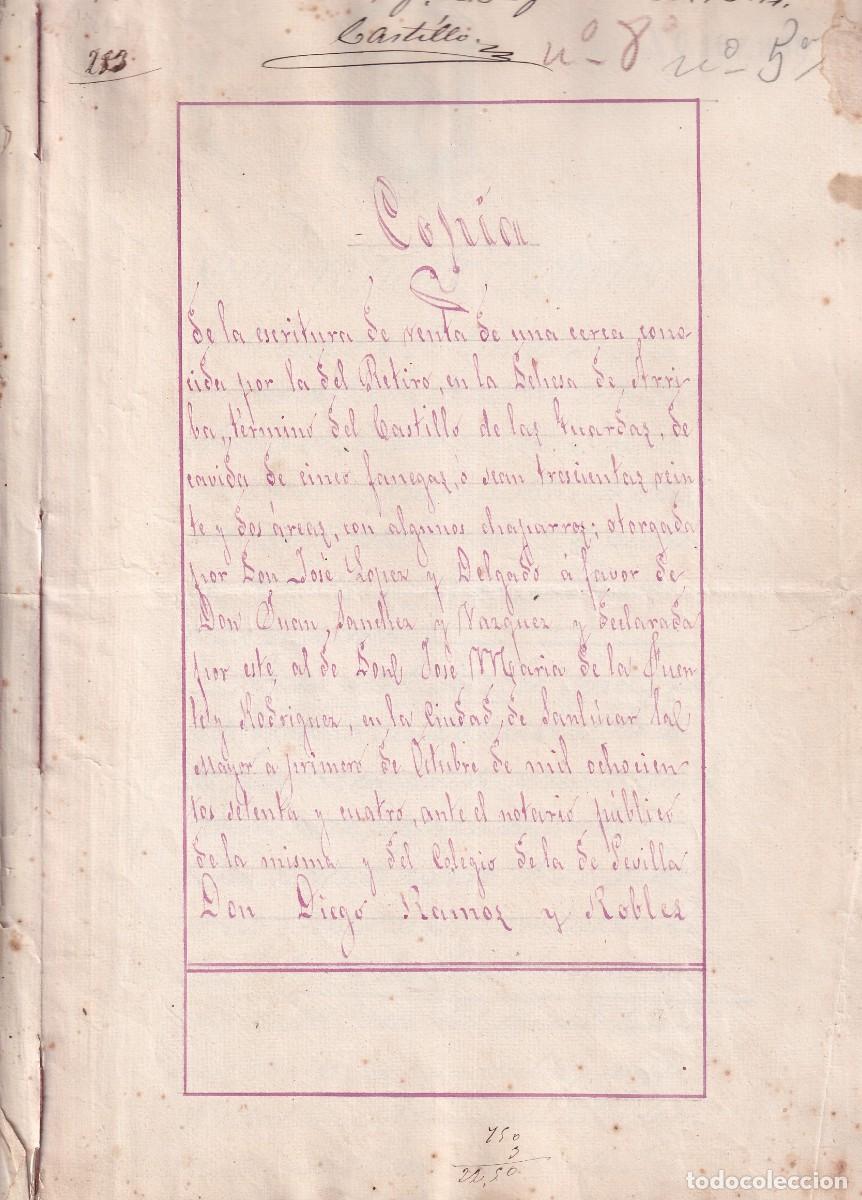 Castillo.
233
nº 8
nº 5º
Copia
de la escritura de venta de una cerca, cono-
cida por la del Retiro, en la Dehesa de Arri-
ba, término del Castillo de las Guardas, de
cavida de cinco fanegas, ó sean trescientas vein-
te y dos áreas, con algunos chaparros; otorgada
por Don José Lopez y Delgado á favor de
Don Juan Sanchez y Vazquez y declarada
por este, al de Don José Maria de la Fuen-
te y Rodriguez, en la Ciudad de Sanlúcar la
Mayor á primero de Octubre de mil ochocien-
tos setenta y cuatro, ante el notario público
de la misma y del Colegio de la de Sevilla
Don Diego Ramos y Robles
750
3
22,50
todocoleccion